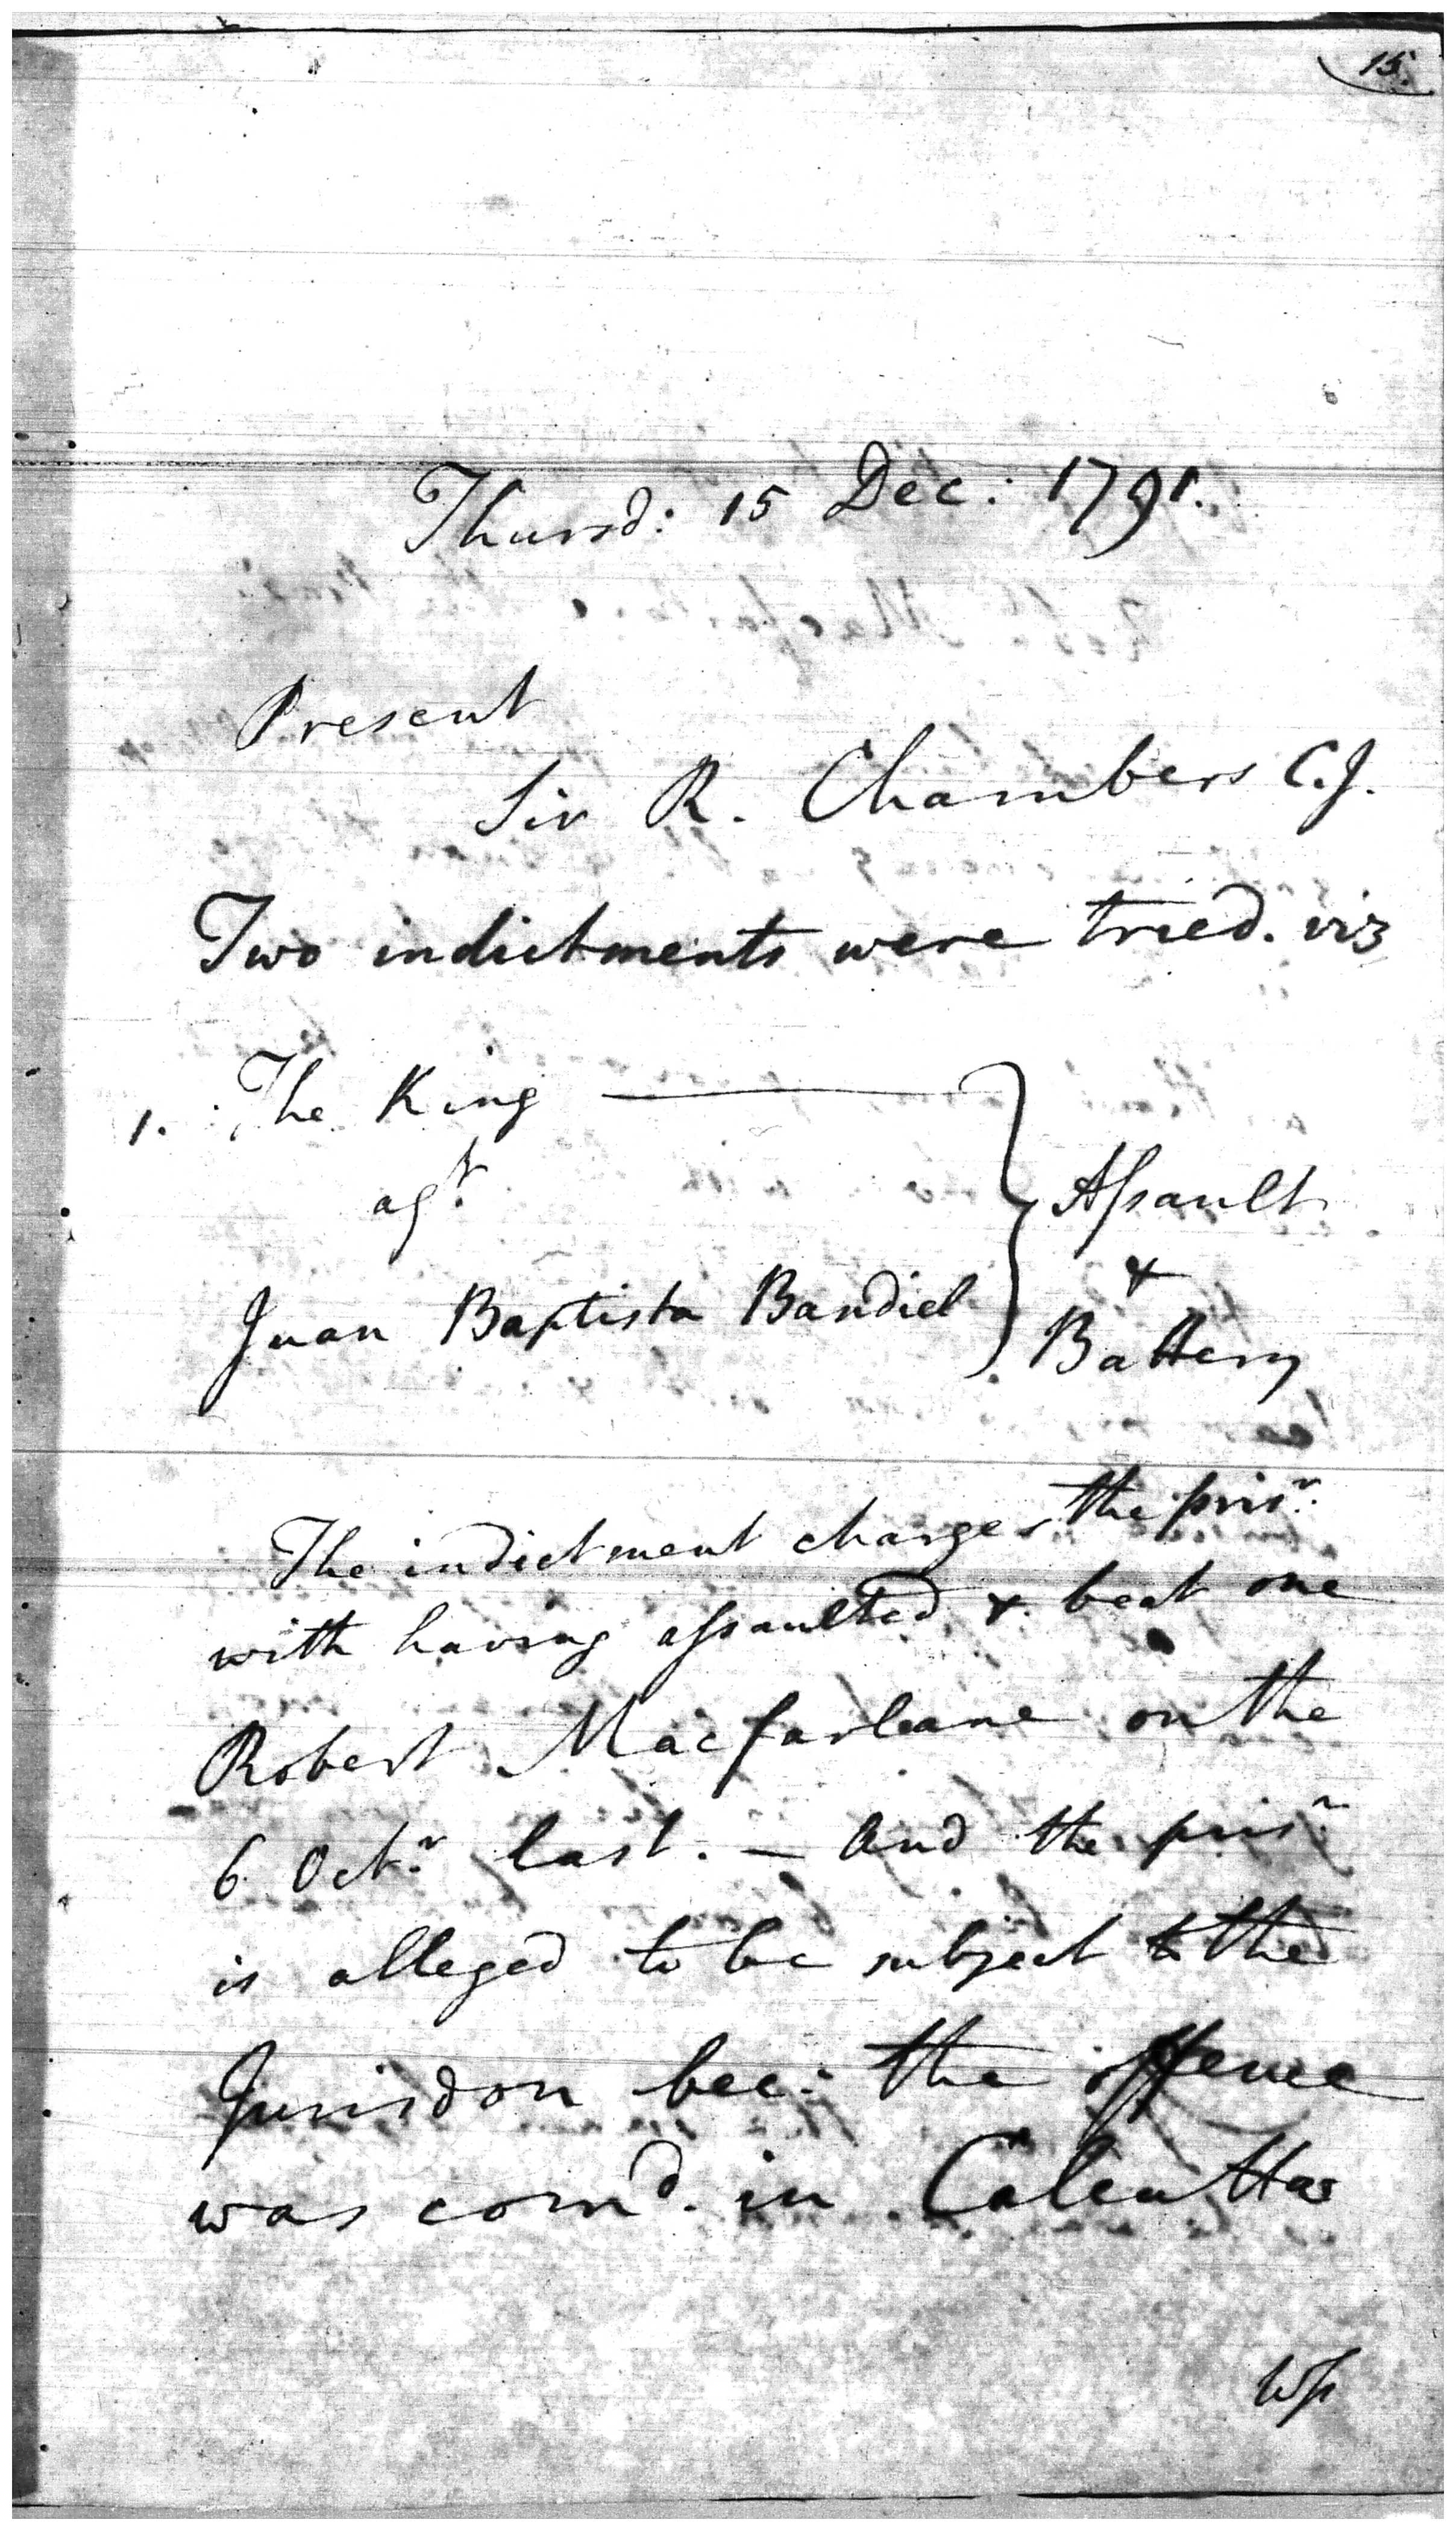 15.
Thursd: 15 Dec: 1791.
Present
Sir R. Chambers C.J.
Two indictments were tried. viz
1. The King
agt.
Juan Baptista Bandiel
Assault
&
Battery
The indictment charges the prisr.
with having assaulted & beat one
Robert Macfarleane on the
6 Octr. last. — And the prisr.
is alleged to be subject to the
Jurisdon bec: the offence
was com'd. in Calcutta